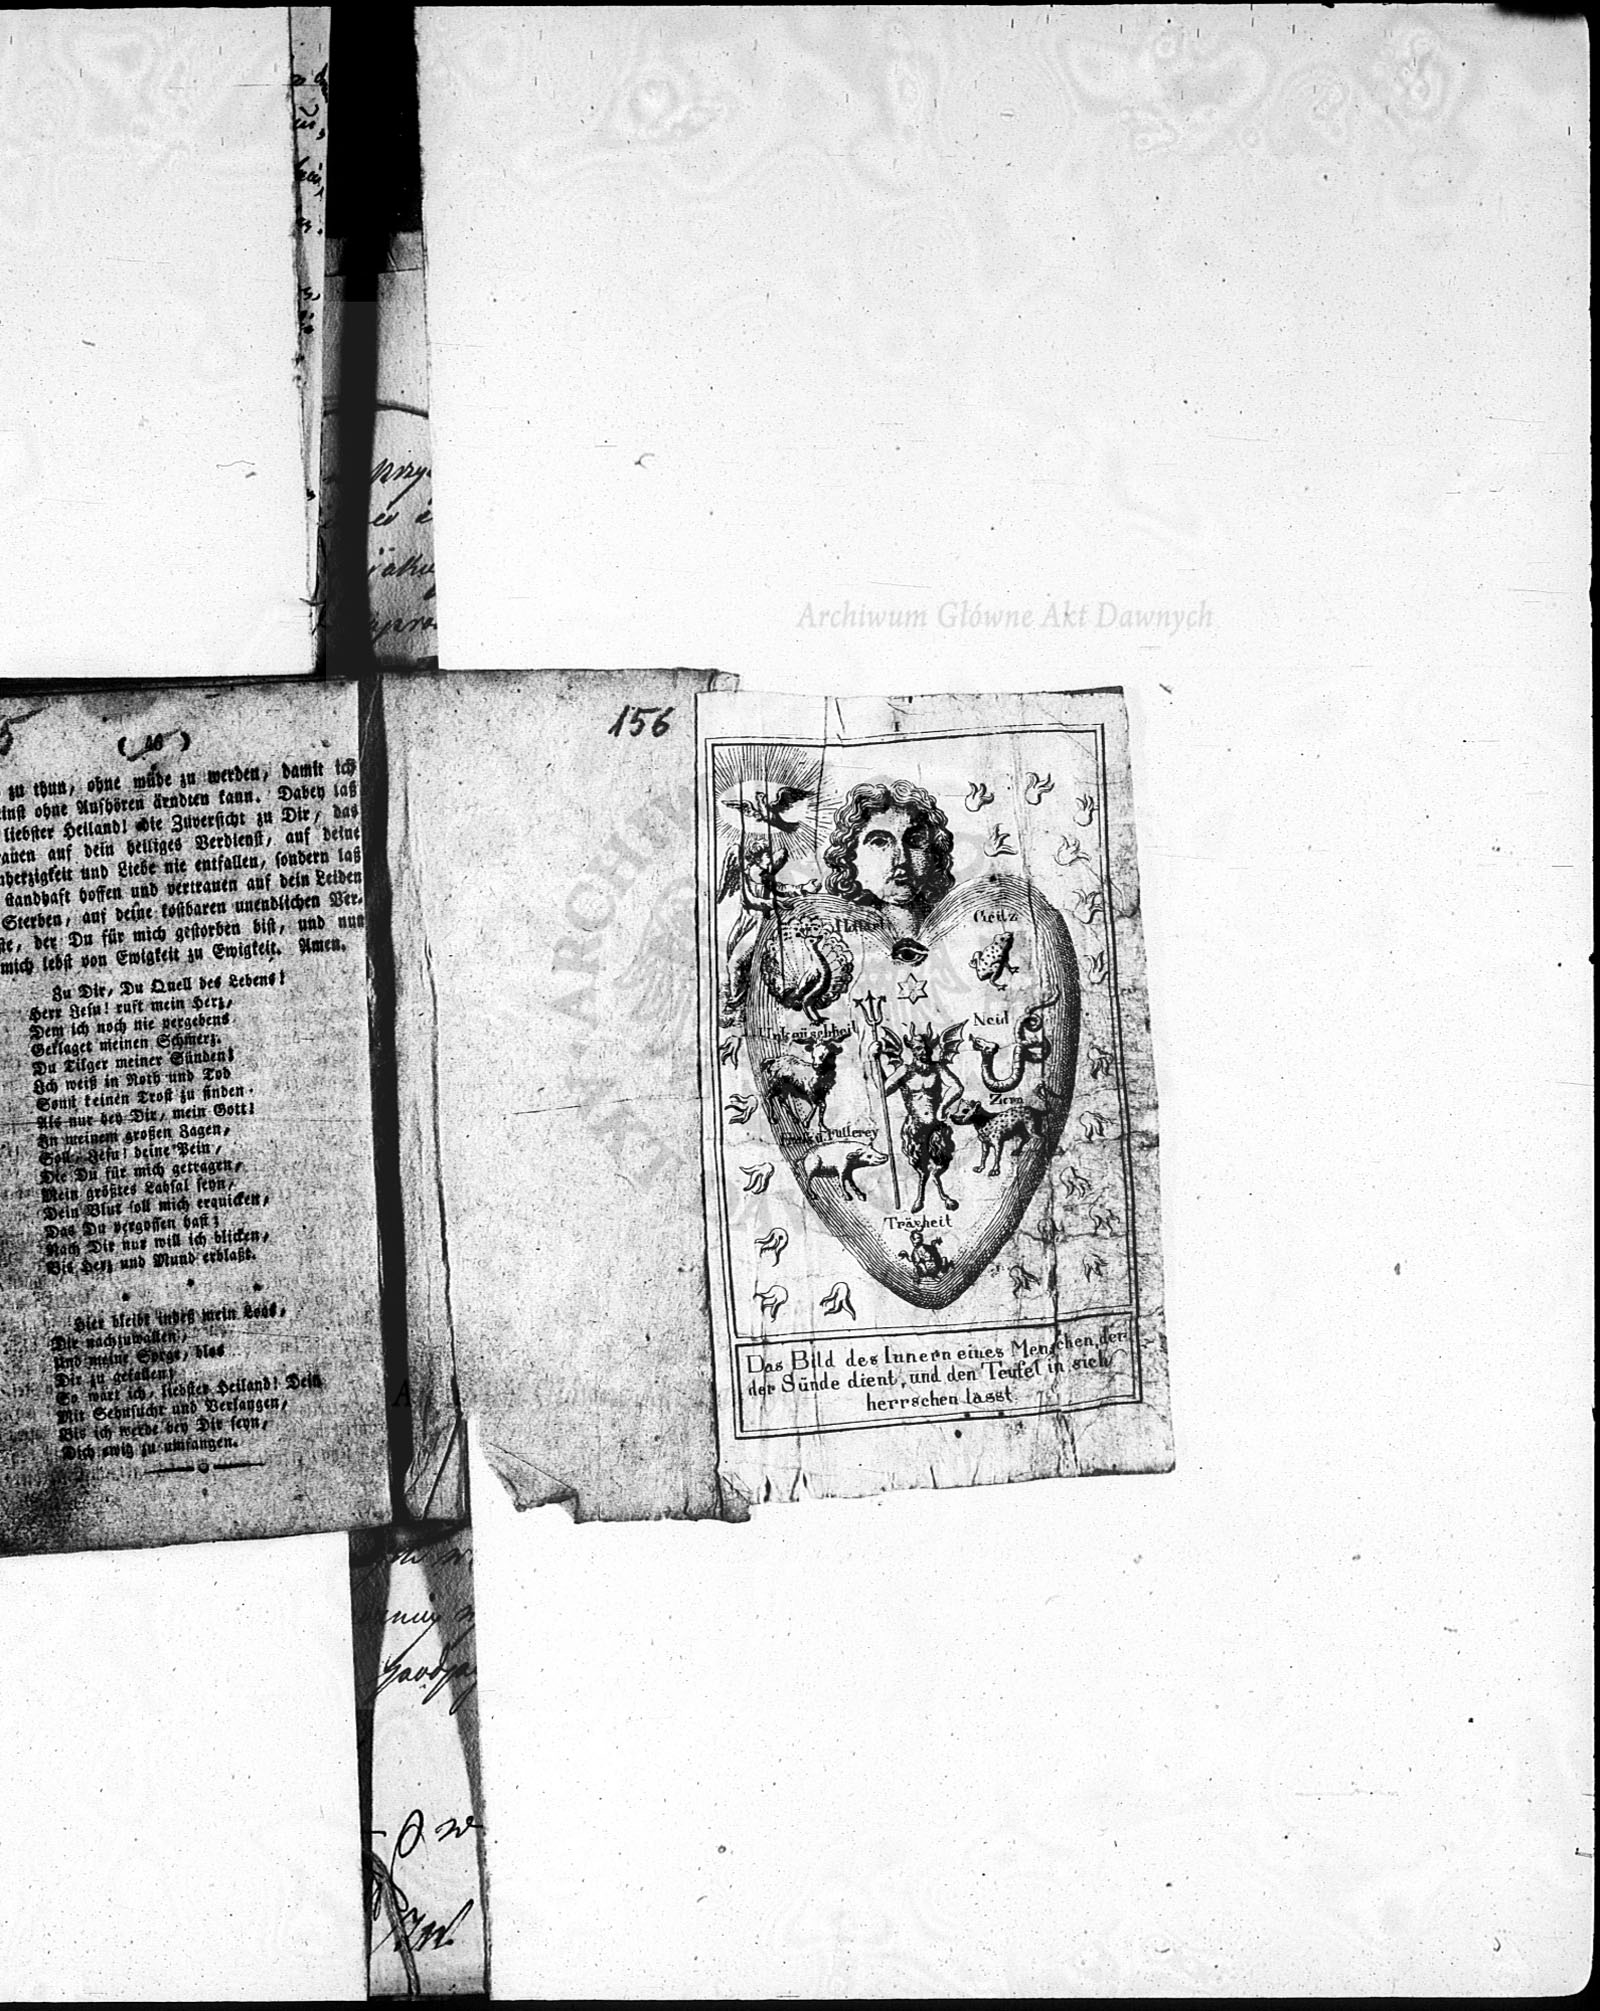 ( 46 )
zu thun, ohne müde zu werden, damit ich
einst ohne Aufhören ärndten kann. Dabey laß
liebster Heiland! die Zuversicht zu Dir, das
auen auf dein heiliges Verdienst, auf deine
herzigkeit und Liebe nie entfallen, sondern laß
standhaft hoffen und vertrauen auf dein Leiden
Sterben, auf deine kostbaren unendlichen Ver-
ste, der Du für mich gestorben bist, und nun
mich lebst von Ewigkeit zu Ewigkeit. Amen.
Zu Dir, Du Quell des Lebens!
Herr Jesu! ruft mein Herz,
Dem ich noch nie vergebens
Geklaget meinen Schmerz.
Du Tilger meiner Sünden!
Ich weiß in Noth und Tod
Sonst keinen Trost zu finden.
Als nur bey Dir, mein Gott!
In meinem großen Zagen,
Soll, Jesu! deine Pein,
Die Du für mich getragen,
Mein größtes Labsal seyn,
Dein Blut soll mich erquicken,
Das Du vergossen hast;
Nach Dir nur will ich blicken,
Bis Herz und Mund erblaßt.
Hier bleibt indeß mein Loos,
Dir nachzuwallen,
Und meine Sorge, blos
Dir zu gefallen;
So wart ich, liebster Heiland! Dein
Mit Sehnsucht und Verlangen,
Bis ich werde bey Dir seyn,
Dich ewig zu umfangen.
156
1
Hoffart
Geitz
Unkeuschheit
Neid
Zorn
Fraß u. Füllerey
Trägheit
Das Bild des Innern eines Menschen, der
der Sünde dient, und den Teufel in sich
herrschen lässt
Archiwum Główne Akt Dawnych